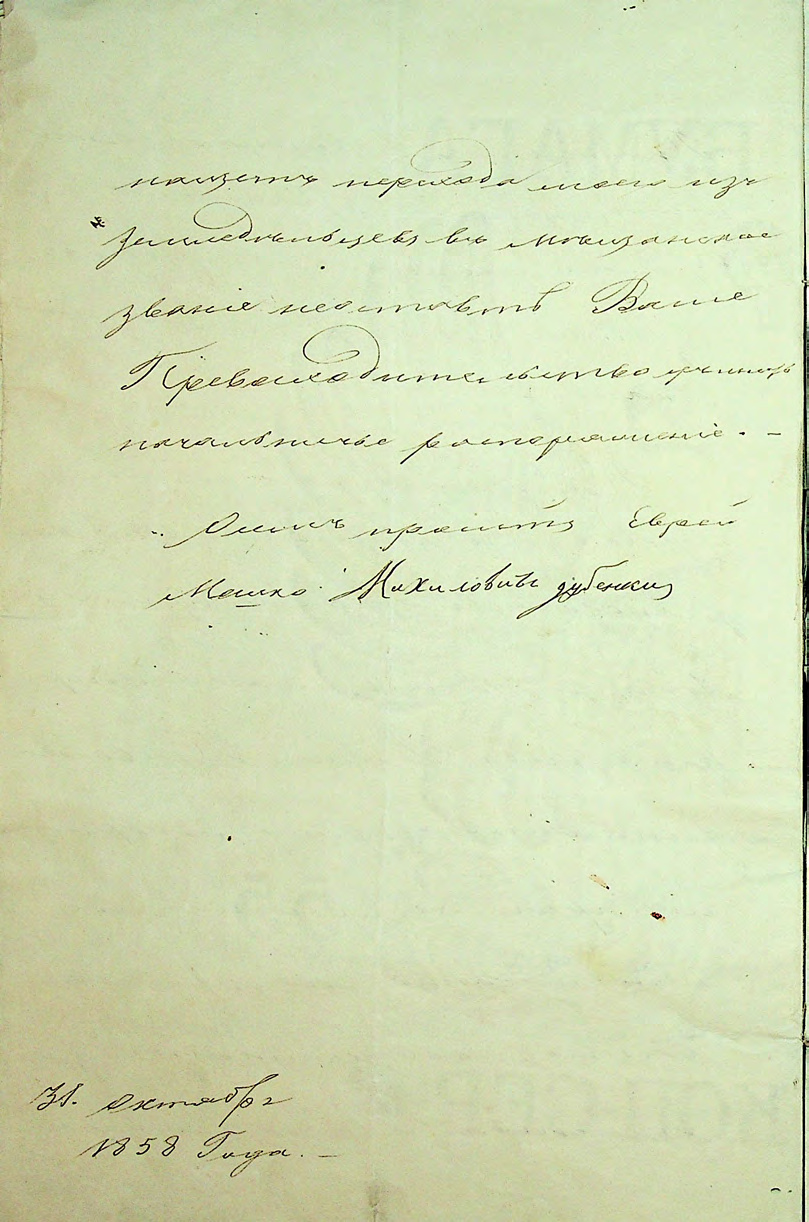 перехода моего изъ
Земледельцевъ въ Мещанское
званіе неоставтѣ Ваше
Превосходительство учинить
начальничье распоряженіе. —
О чемъ проситъ Еврей
Мошко Михиловичъ дубенкий
31. Октября
1858 Года. —